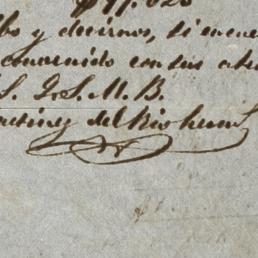 $ 41.620
bo y decirnos, si encue
convenido con sus ate
S. Q. S. M. B.
artinez del Rio herm.